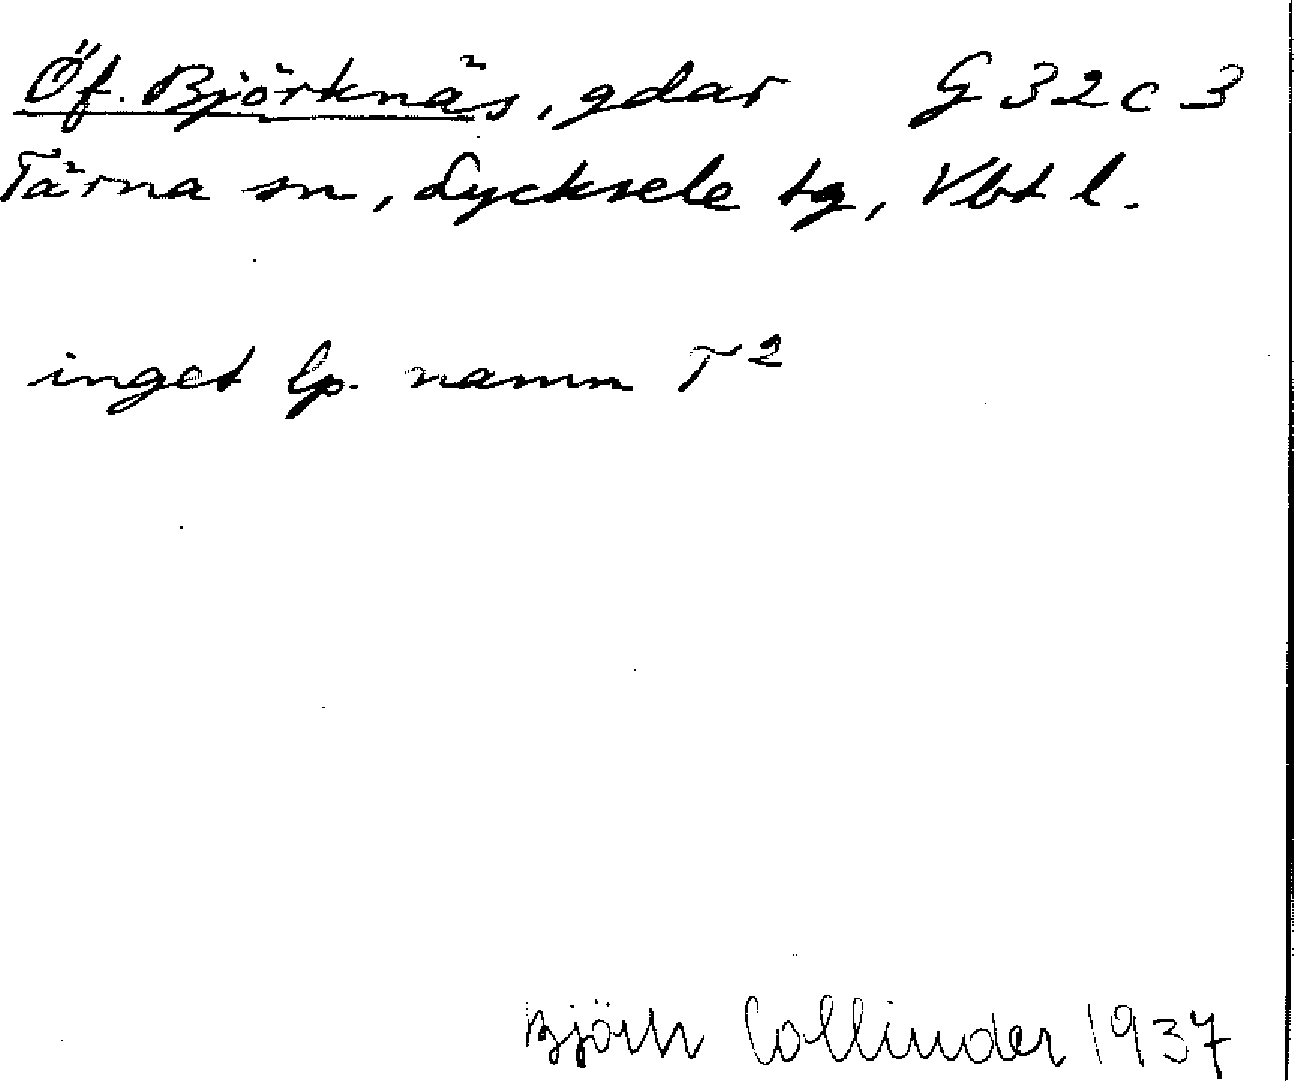 Öf. Björknäs, gdar G 32 c 3
Tärna sn, Lycksele tg, Vbt l.
inget lp. namn T²
Björn Collinder 1937